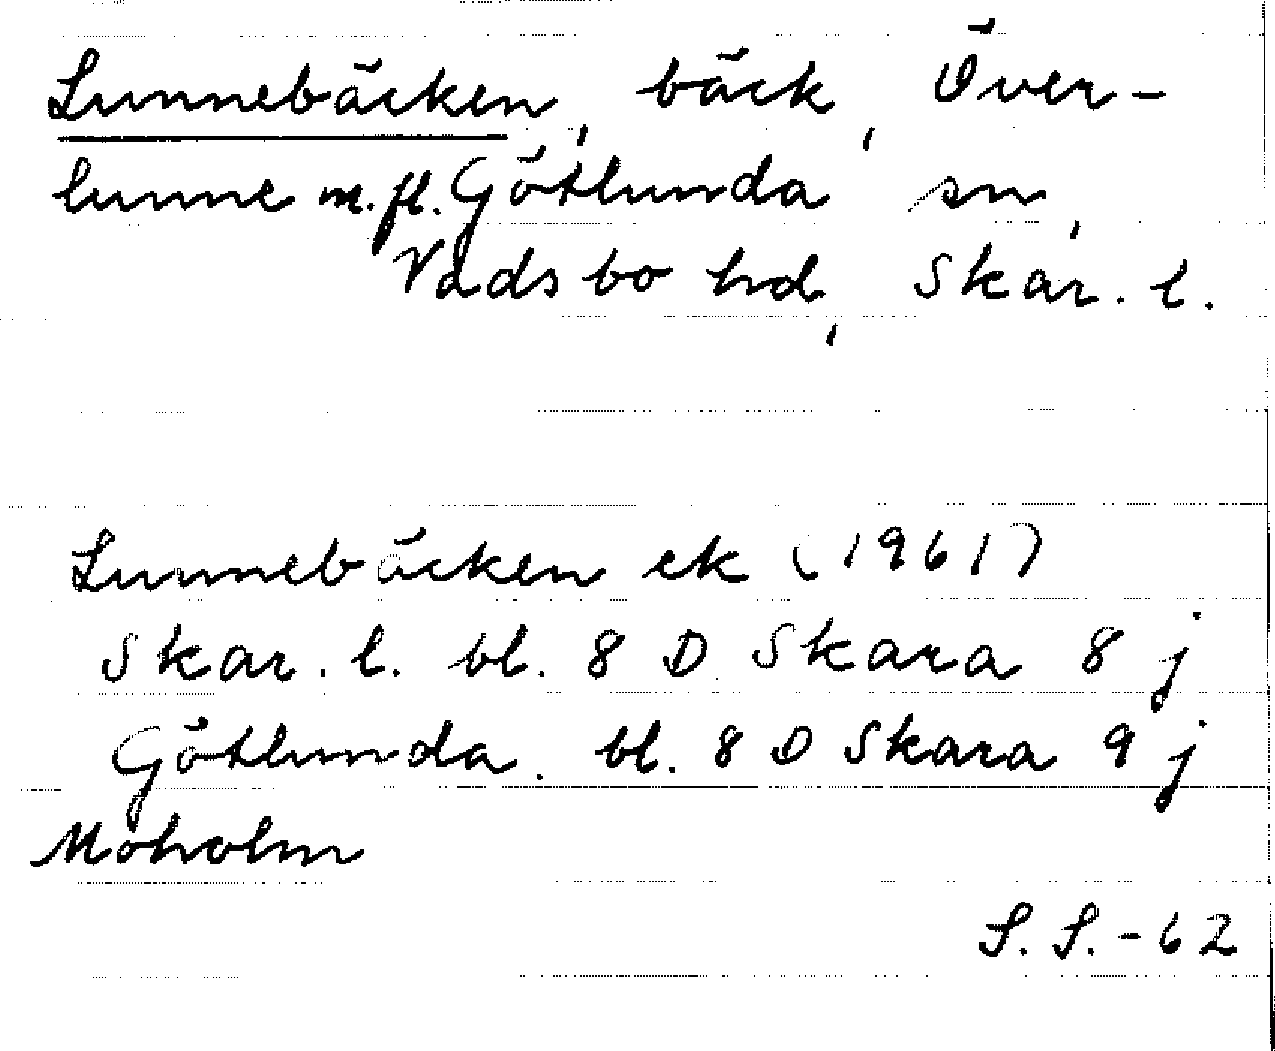 Lunnebäcken, bäck, Över-
lunne m.fl. Götlunda sn,
Vadsbo hd, Skar. l.
Lunnebäcken ek (1961)
Skar. l. bl. 8 D Skara 8 j
Götlunda. bl. 8 D Skara 9 j
Moholm
S. S. -62